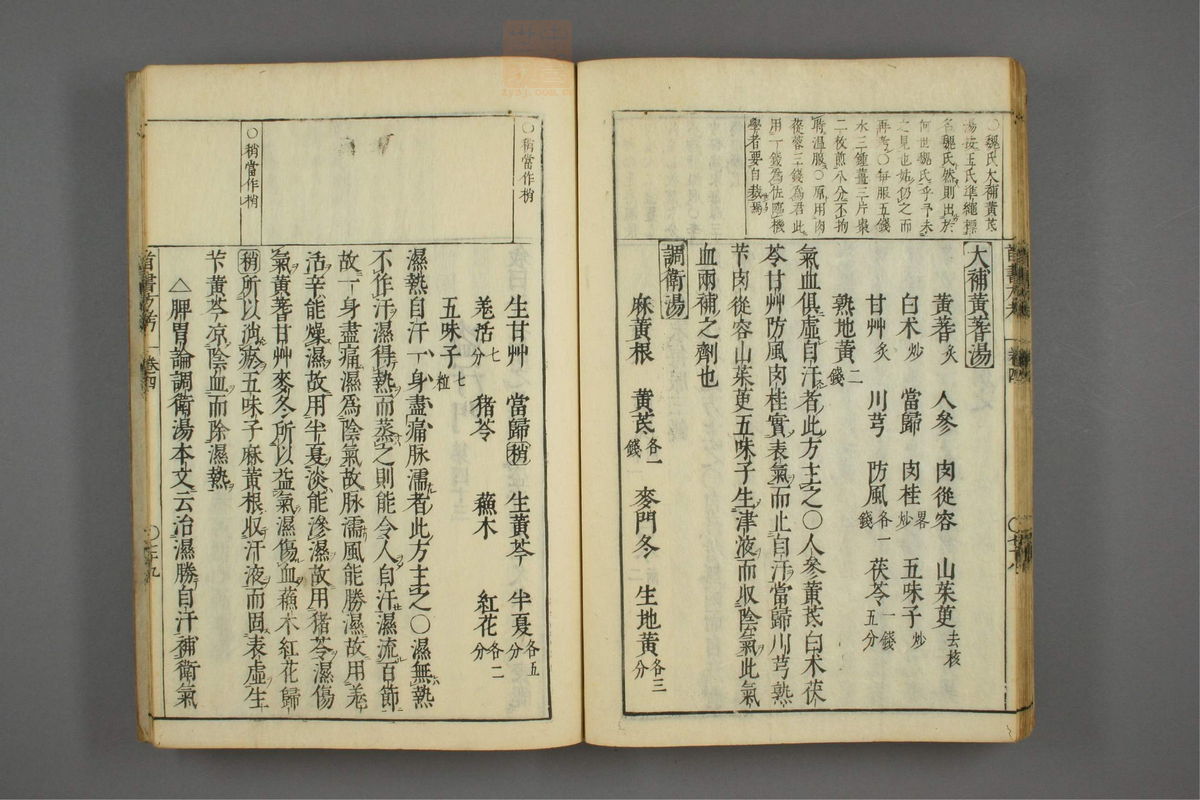 ○魏氏大補黃芪
湯按王氏準繩標
名魏氏然則出於
何世魏氏乎予未
之見也姑仍之而
再考○每服五錢
水三鍾薑三片棗
二枚煎八分不拘
時溫服○原用肉
蓯蓉三錢為君此
用一錢為佐臨機
學者要自裁焉
大補黃蓍湯
黃蓍炙 人參 肉從容 山茱萸去核
白朮炒 當歸 肉桂畧炒 五味子炒
甘艸炙 川芎 防風各一錢 茯苓一錢五分
熟地黃二錢
氣血俱虛自汗者此方主之○人參黃芪白朮茯
苓甘艸防風肉桂實表氣而止自汗當歸川芎熟
芐肉從容山茱萸五味子生津液而収陰氣此氣
血兩補之劑也
調衛湯
麻黃根 黃芪各一錢 麥門冬 生地黃各三分
○稍當作梢
○稍當作梢
生甘艸 當歸稍 生黃芩 半夏各五分
羗活七分 猪苓 蘓木 紅花各二分
五味子七粒
濕熱自汗一身盡痛脉濡者此方主之○濕無熱
不作汗濕得熱而蒸之則能令人自汗濕流百節
故一身盡痛濕為陰氣故脉濡風能勝濕故用羗
活辛能燥濕故用半夏淡能滲濕故用猪苓濕傷
氣黃蓍甘艸麥冬所以益氣濕傷血蘓木紅花歸
稍所以消瘀五味子麻黃根収汗液而固表虛生
芐黃芩凉陰血而除濕熱
△脾胃論調衛湯本文云治濕勝自汗補衛氣
首書方考 卷四 ○七十九